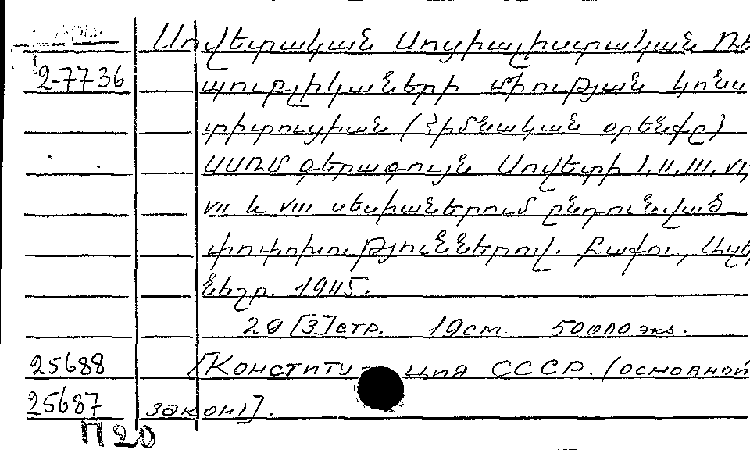 Սովետական Սոցիալիստական Ռե
2-7736 պուբլիկաների Միության կոնս
տիտուցիան (Հիմնական օրենքը)
ՍՍՌՄ գերագույն Սովետի I, II, III, VI,
VII և VIII սեսիաներում ընդունված
փոփոխություններով. Բաքու, Ազ
նեշր 1945.
28 [3] стр. 19 см. 5000 экз.
25688 [Конституция СССР. (основной
25687 закон)].
П20